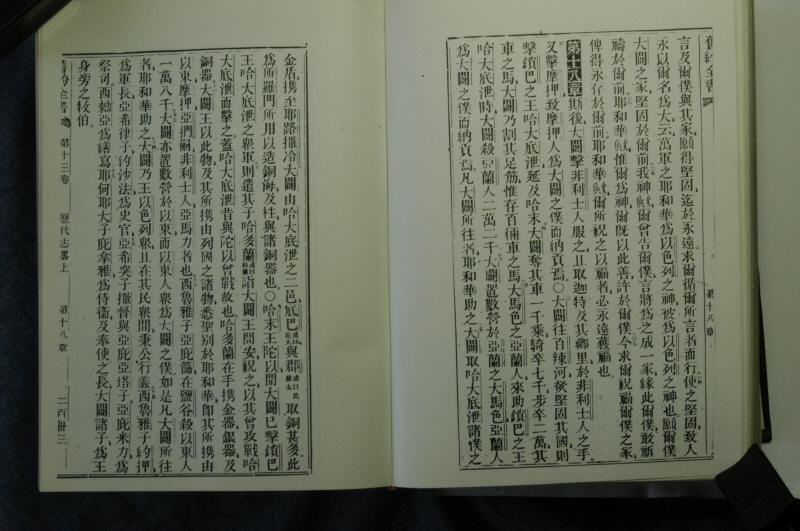 舊約全書
第十八章
言及爾僕與其家願得堅固迄於永遠求爾循爾所言者而行使之堅固致人
永以爾名爲大云萬軍之耶和華爲以色列之神彼爲以色列之神也願爾僕
大闢之家堅固於爾前我神歟爾曾告爾僕言將爲之成一家緣此爾僕敢祈
禱於爾前耶和華歟惟爾爲神爾既以此善許於爾僕今求爾祝福爾僕之家
俾得永存於爾前耶和華歟爾所祝之以福者必永遠獲福也
第十八章斯後大闢擊非利士人服之且取迦特及其鄉里於非利士人之手
又擊摩押致摩押人爲大闢之僕而納貢焉○大闢往百辣河欲堅固其國則
擊鎖巴之王哈大底泄延及哈末大闢奪其車一千乘騎卒七千步卒二萬其
車之馬大闢乃割其足筋惟存百輛車之馬大馬色之亞蘭人來助鎖巴之王
哈大底泄時大闢殺亞蘭人二萬二千大闢置數營於亞蘭之大馬色亞蘭人
爲大闢之僕而納貢焉凡大闢所往者耶和華助之大闢取哈大底泄諸僕之
金盾攜至耶路撒冷大闢由哈大底泄之二邑底巴與郡取銅甚多此
爲所羅門所用以造銅海及柱與諸銅器也○哈末王陀以聞大闢已擊鎖巴
王哈大底泄之衆軍則遣其子哈多蘭詣大闢王問安祝之以其曾攻戰哈
大底泄而擊之蓋哈大底泄昔與陀以曾戰故也哈多蘭在手攜金器銀器及
銅器大闢王以此物及其所攜由列國之諸物悉聖別於耶和華卽其所攜由
以東摩押亞捫嗣非利士人亞馬力者也西魯雅子亞庇篩在鹽谷殺以東人
一萬八千大闢亦置數營於以東而以東人衆爲大闢之僕如是凡大闢所往
者耶和華助之大闢乃王以色列衆且在其民衆間秉公行義西魯雅子約押
爲軍長亞希律子約沙法爲史官亞希突子撒督與亞庇亞塔子亞庇米力爲
祭司西勑亞爲繕寫耶何耶大子庇拿雅爲侍衞及奉使之長大闢諸子爲王
身旁之牧伯
舊約全書
第十三卷
歷代志畧上
第十八章
二百卌三